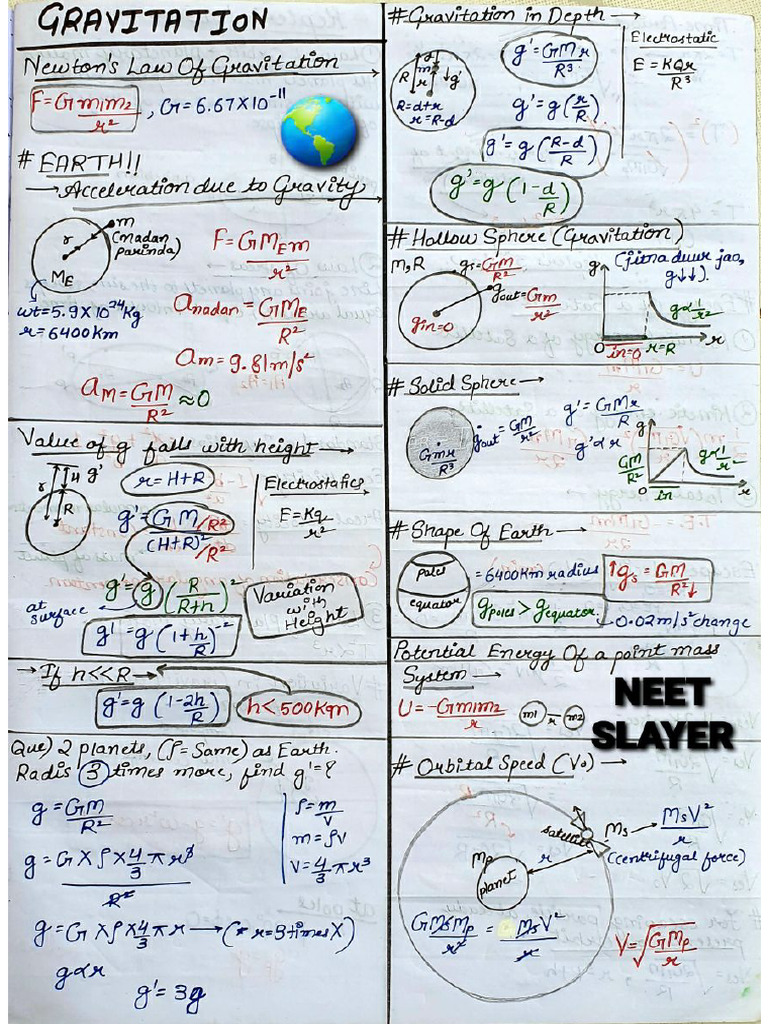 GRAVITATION
Newton's Law Of Gravitation
F=Gm1m2/r², G=6.67×10⁻¹¹
# EARTH!!
→ Acceleration due to Gravity
m
(Madan
parinda)
r
ME
wt=5.9×10²⁴Kg
r=6400km
F=GMEm/r²
anadan=GME/R²
am=9.81m/s²
am=GM/R²≈0
Value of g falls with height →
r
H
g'
R
r=H+R
g'=GM/R²/(H+R)²/R²
Electrostatics
E=Kq/r²
at surface
g'=g(R/R+h)²
Variation
with
Height
g'=g(1+h/R)⁻²
→ If h<<R →
g'=g(1-2h/R)
h<500Km
Que) 2 planets, (ρ=Same) as Earth.
Radis 3 times more, find g'=?
g=GM/R²
ρ=m/v
m=ρv
V=4/3πr³
g=G×ρ×4/3πr³/R²
g=G×ρ×4/3πr → (* r=3times×)
gαr
g'=3g
# Gravitation in Depth →
d
R
m
r
g'
R=d+r
r=R-d
g'=GMr/R³
Electrostatic
E=KQr/R³
g'=g(r/R)
g'=g(R-d/R)
g'=g(1-d/R)
# Hollow Sphere (Gravitation)
M,R
gs=GM/R²
gout=Gm/r²
gin=0
g
(jitna duur jao,
g↓↓).
gα1/r²
0
in=0
r=R
r
# Solid Sphere →
Gmr/R³
gout=GM/r²
g'=GMr/R
g'αr
g
GM/R²
gα1/r²
0
in
r
# Shape Of Earth →
poles
equator
=6400Km radius
↑gs=GM/R²↓
gpoles>gequator
→0.02m/s² change
Potential Energy Of a point mass
System →
U=-Gm1m2/r
m1
r
m2
NEET
SLAYER
# Orbital Speed (Vo) →
satellite
Ms → MsV²/r
(centrifugal force)
Mp
planet
r
GMsMp/r²=MsV²/r
V=√GMp/r